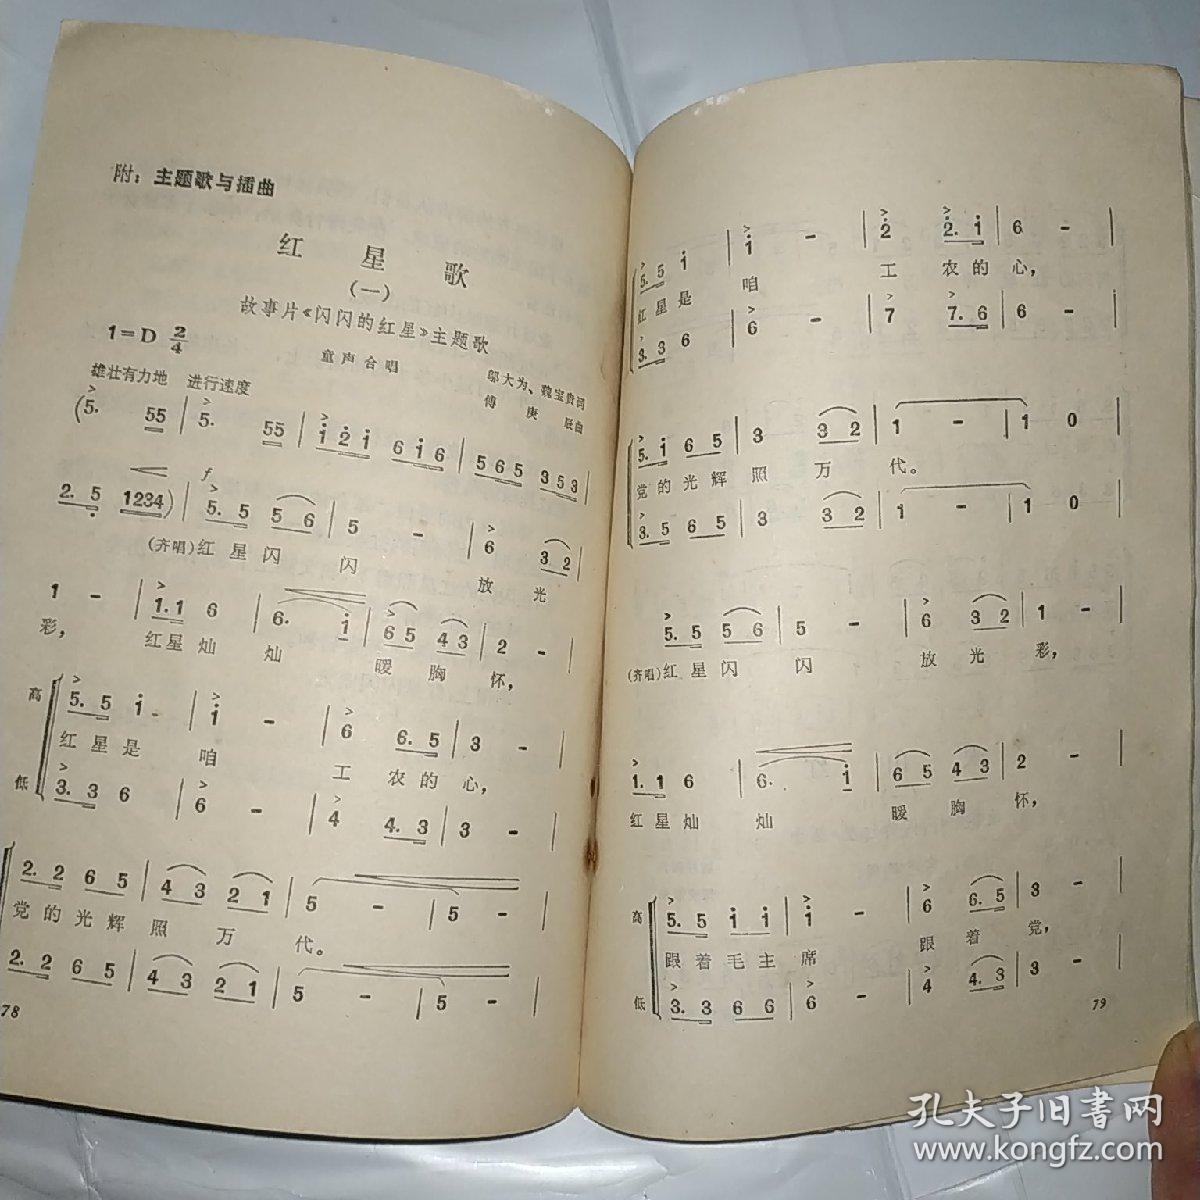 附：主题歌与插曲
红星歌
(一)
故事片《闪闪的红星》主题歌
1=D 2/4
童声合唱
雄壮有力地 进行速度
邬大为、魏宝贵词
傅庚辰曲
(5. 55 | 5. 55 | i 2 i 6 i 6 | 5 6 5 3 5 3 |
2. 5 1234) | 5. 5 5 6 | 5 - | 6 3 2 |
(齐唱)红星闪闪放光
1 - | 1. 1 6 | 6. i | 6 5 4 3 | 2 - |
彩，红星灿灿暖胸怀，
高 5. 5 i | i - | 6 6. 5 | 3 - |
红星是咱工农的心，
低 3. 3 6 | 6 - | 4 4. 3 | 3 - |
2. 2 6 5 | 4 3 2 1 | 5 - | 5 - |
党的光辉照万代。
2. 2 6 5 | 4 3 2 1 | 5 - | 5 - |
78
5. 5 i | i - | 2 2. i | 6 - |
红星是咱工农的心，
3. 3 6 | 6 - | 7 7. 6 | 6 - |
5. i 6 5 | 3 3 2 | 1 - | 1 0 |
党的光辉照万代。
3. 5 6 5 | 3 3 2 | 1 - | 1 0 |
5. 5 5 6 | 5 - | 6 3 2 | 1 - |
(齐唱)红星闪闪放光彩，
1. 1 6 | 6. i | 6 5 4 3 | 2 - |
红星灿灿暖胸怀，
高 5. 5 i i | i - | 6 6. 5 | 3 - |
跟着毛主席跟着党，
低 3. 3 6 6 | 6 - | 4 4. 3 | 3 - |
79
孔夫子旧书网
www.kongfz.com